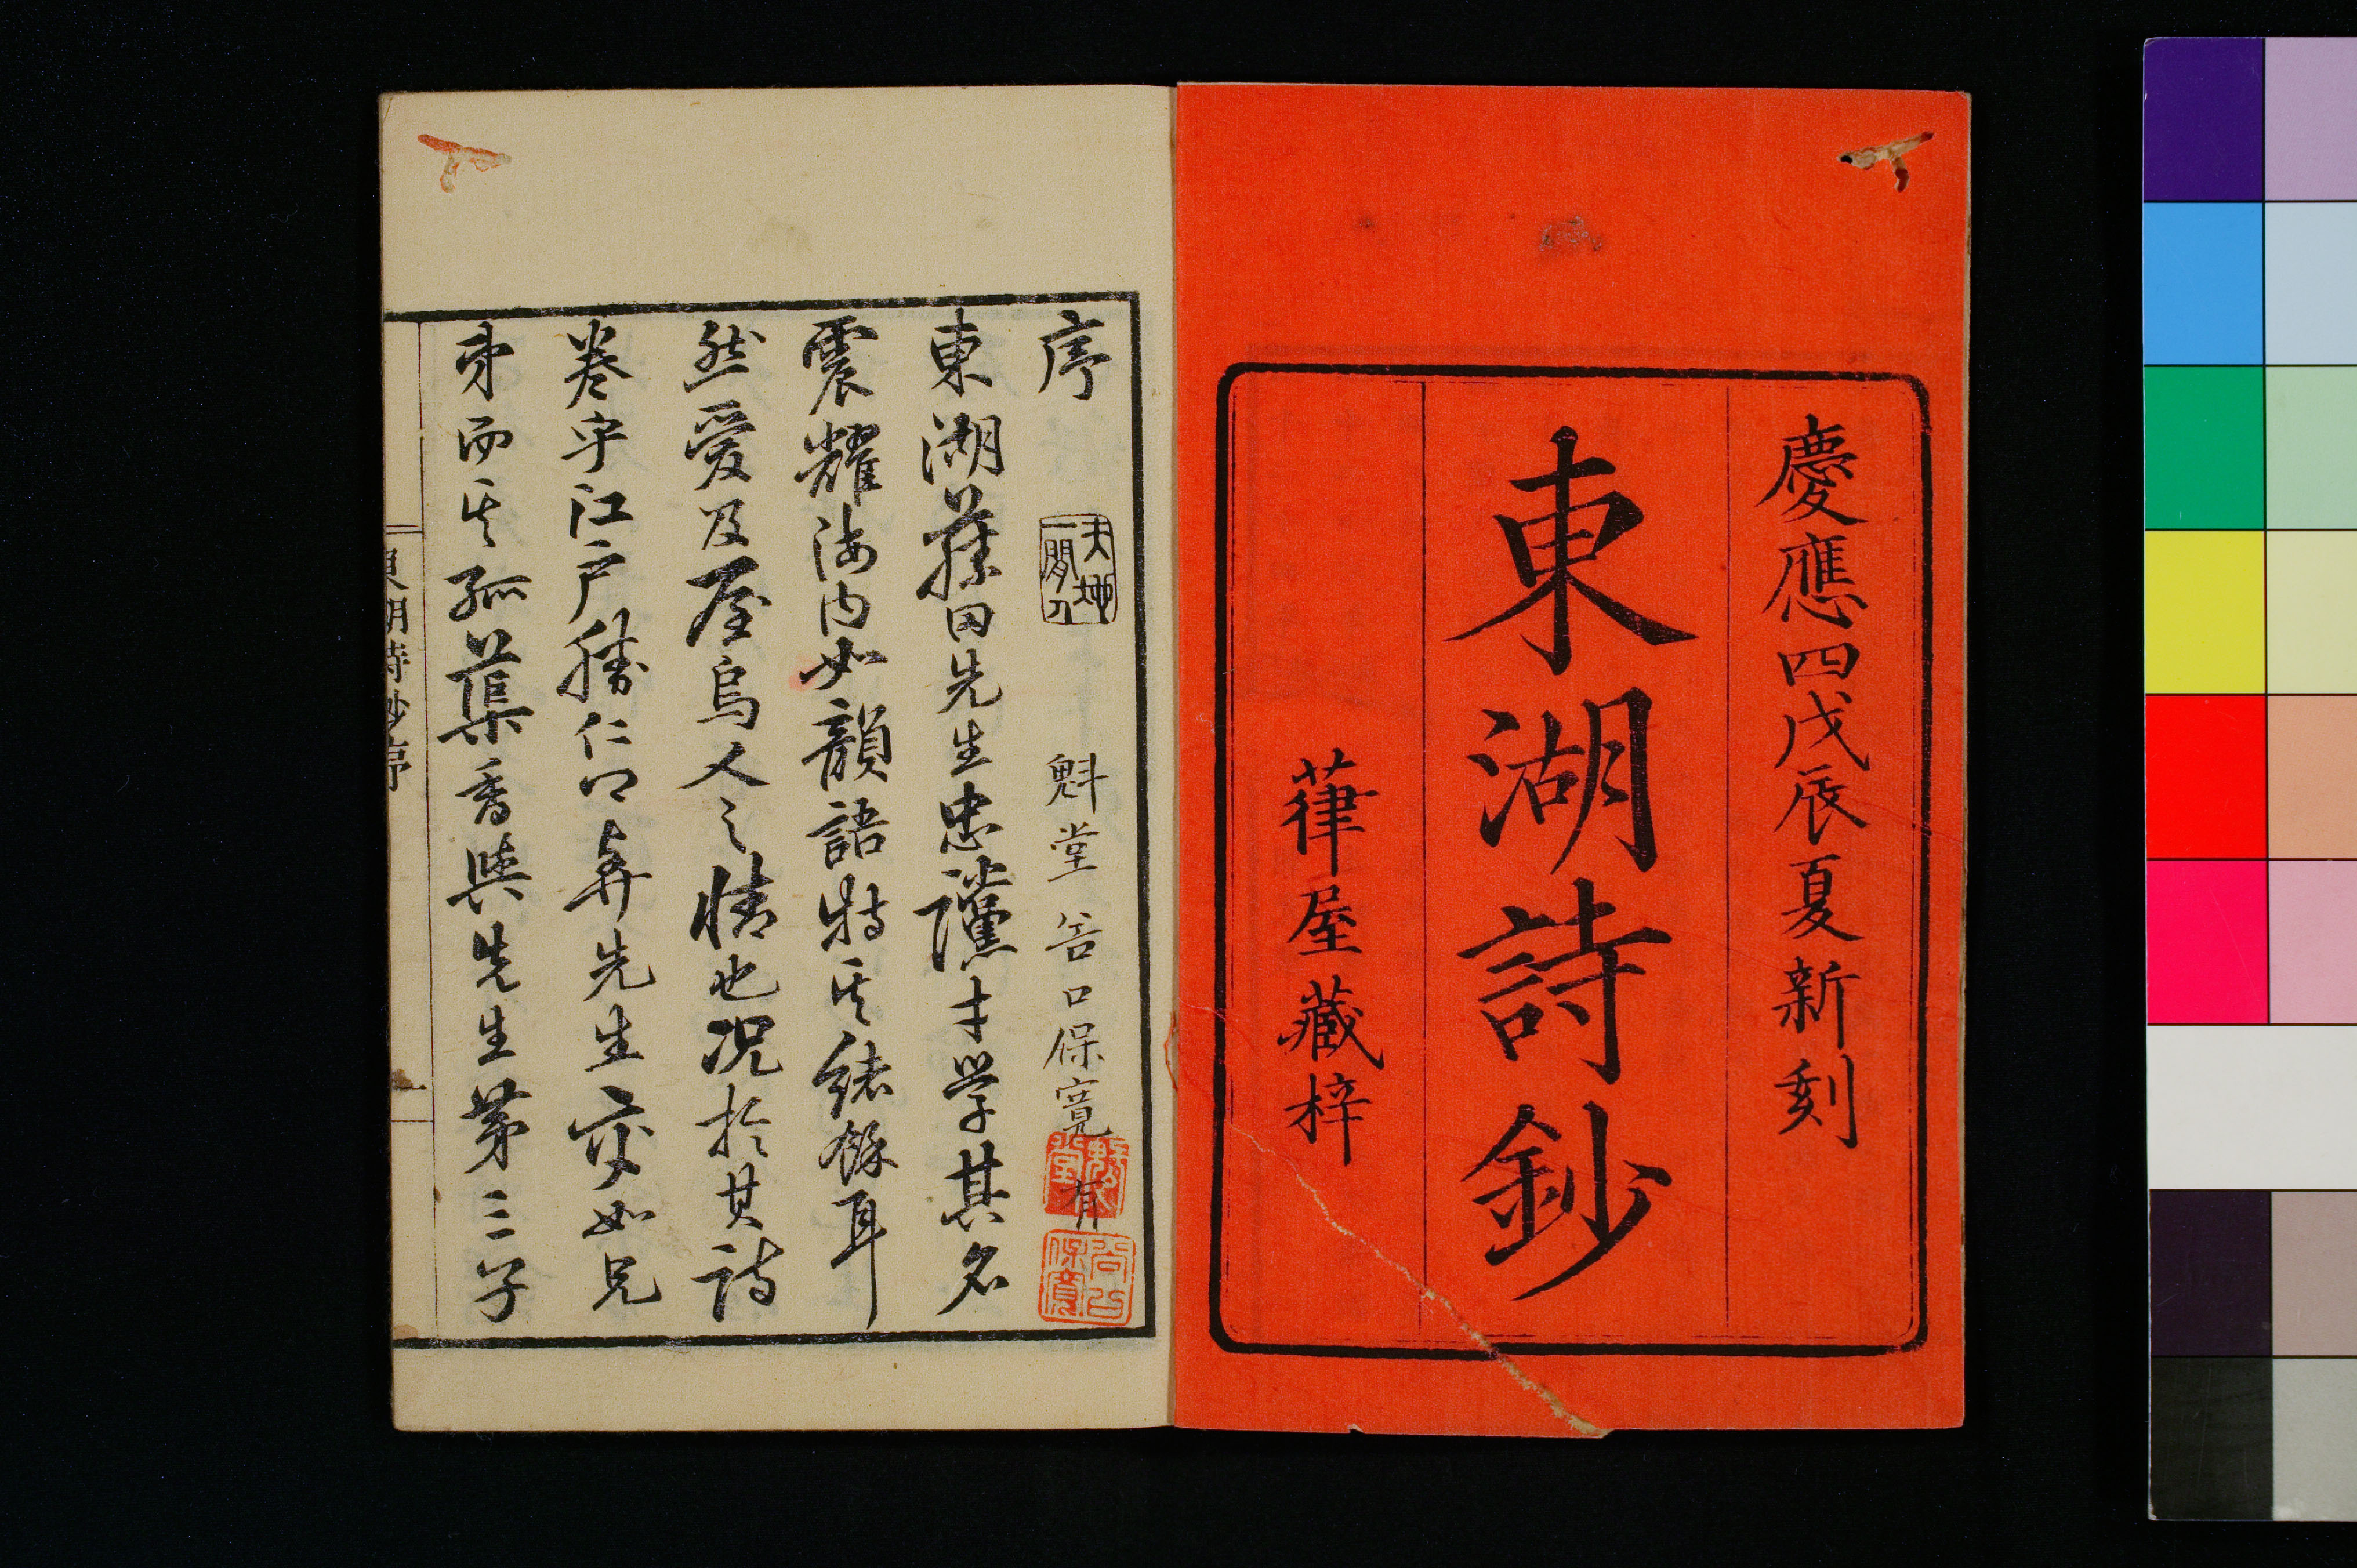 慶應四戊辰夏新刻
東湖詩鈔
葎屋藏梓
序
天地一閒人
魁堂谷口保寬
東湖藤田先生忠讜才学其名
震耀海內如韻語特其緒餘耳
然愛及屋烏人之情也况於其詩
卷乎江戶勝仁卿弄先生交如兄
弟而其孤蕖香與先生第三子
東湖詩鈔序